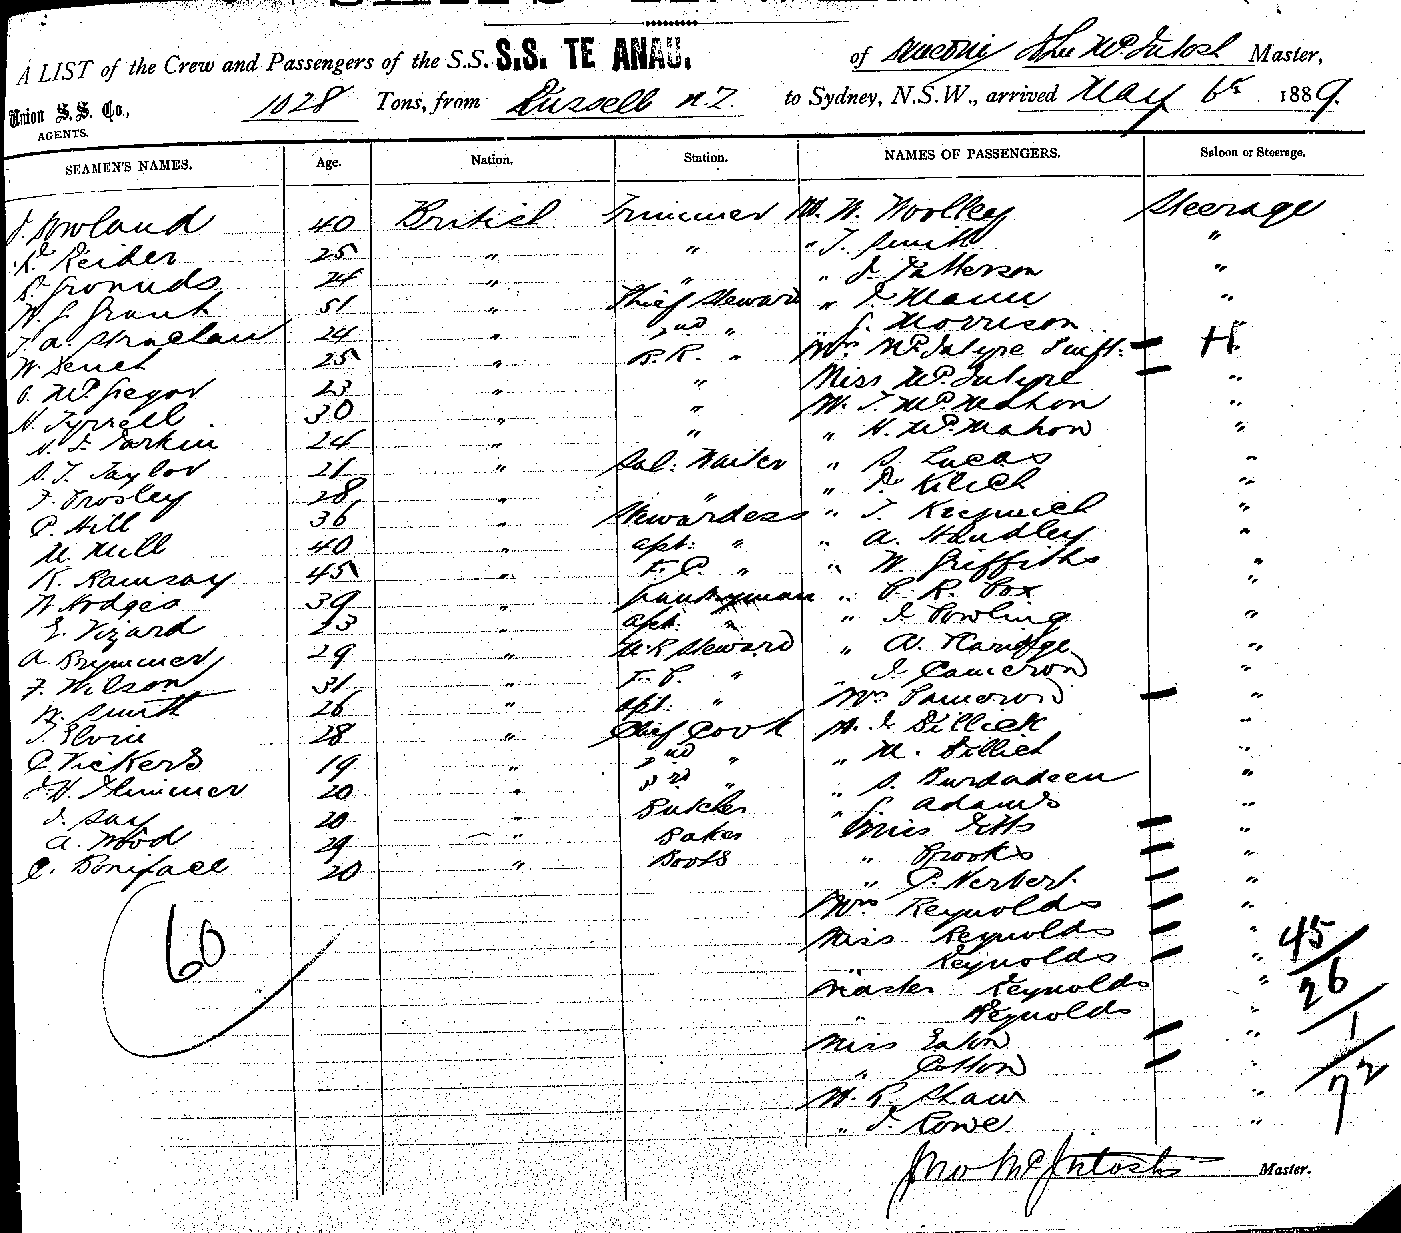 A LIST of the Crew and Passengers of the S.S. S.S. TE ANAU. of John McIntosh Master,
Union S. S. Co., AGENTS. 1028 Tons, from Russell N.Z. to Sydney, N.S.W., arrived May 6th 1889.
SEAMEN'S NAMES. Age. Nation. Station. NAMES OF PASSENGERS. Saloon or Steerage.
J. Rowland 40 British Trimmer Mr. W. Woolley Steerage
Reiher 25 " " " T. Smith "
24 " " " J. Patterson "
W. J. Grant 51 " Chief Steward " J. Mann "
Sinclair 24 " 2nd " " Morrison "
W. 25 " B.R. " Mrs McIntyre Inft.
McGregor 23 " " Miss McIntyre "
N. Tyrrell 30 " " Mr. T. McMahon "
Parkin 24 " " " N. McMahon "
S. T. Taylor 21 " Sal: Waiter " S. Lucas "
F. Crosley 28 " " "
C. Hill 36 " Stewardess " T. "
M. Mill 40 " asst: " " A. Handley "
R. Ramsay 45 " F.C. " " W. Griffiths "
W. Hodges 39 " Pantryman " C. R. Cox "
E. Vizard 23 " asst. " " J. Cowling "
A. Brymmer 29 " Steward "
F. Wilson 31 " F.C. " " J. Cameron "
W. Smith 26 " asst. " Mrs Cameron "
28 " Chief Cook Mr. J. Dillick "
C. Vickers 19 " 2nd " " M. "
20 " 3rd " "
J. Gay 20 " Butcher " Adams "
A. Wood 29 " Baker Miss "
C. Boniface 20 " Boots " Brooks "
" C. Herbert "
Mrs Reynolds "
60 Miss Reynolds " 45
" Reynolds " 26
Master Reynolds "
" Reynolds " 1
Miss Eaton "
" Cotton 72
Mr. R. Shaw "
" J. Rowe "
Jno McIntosh Master.